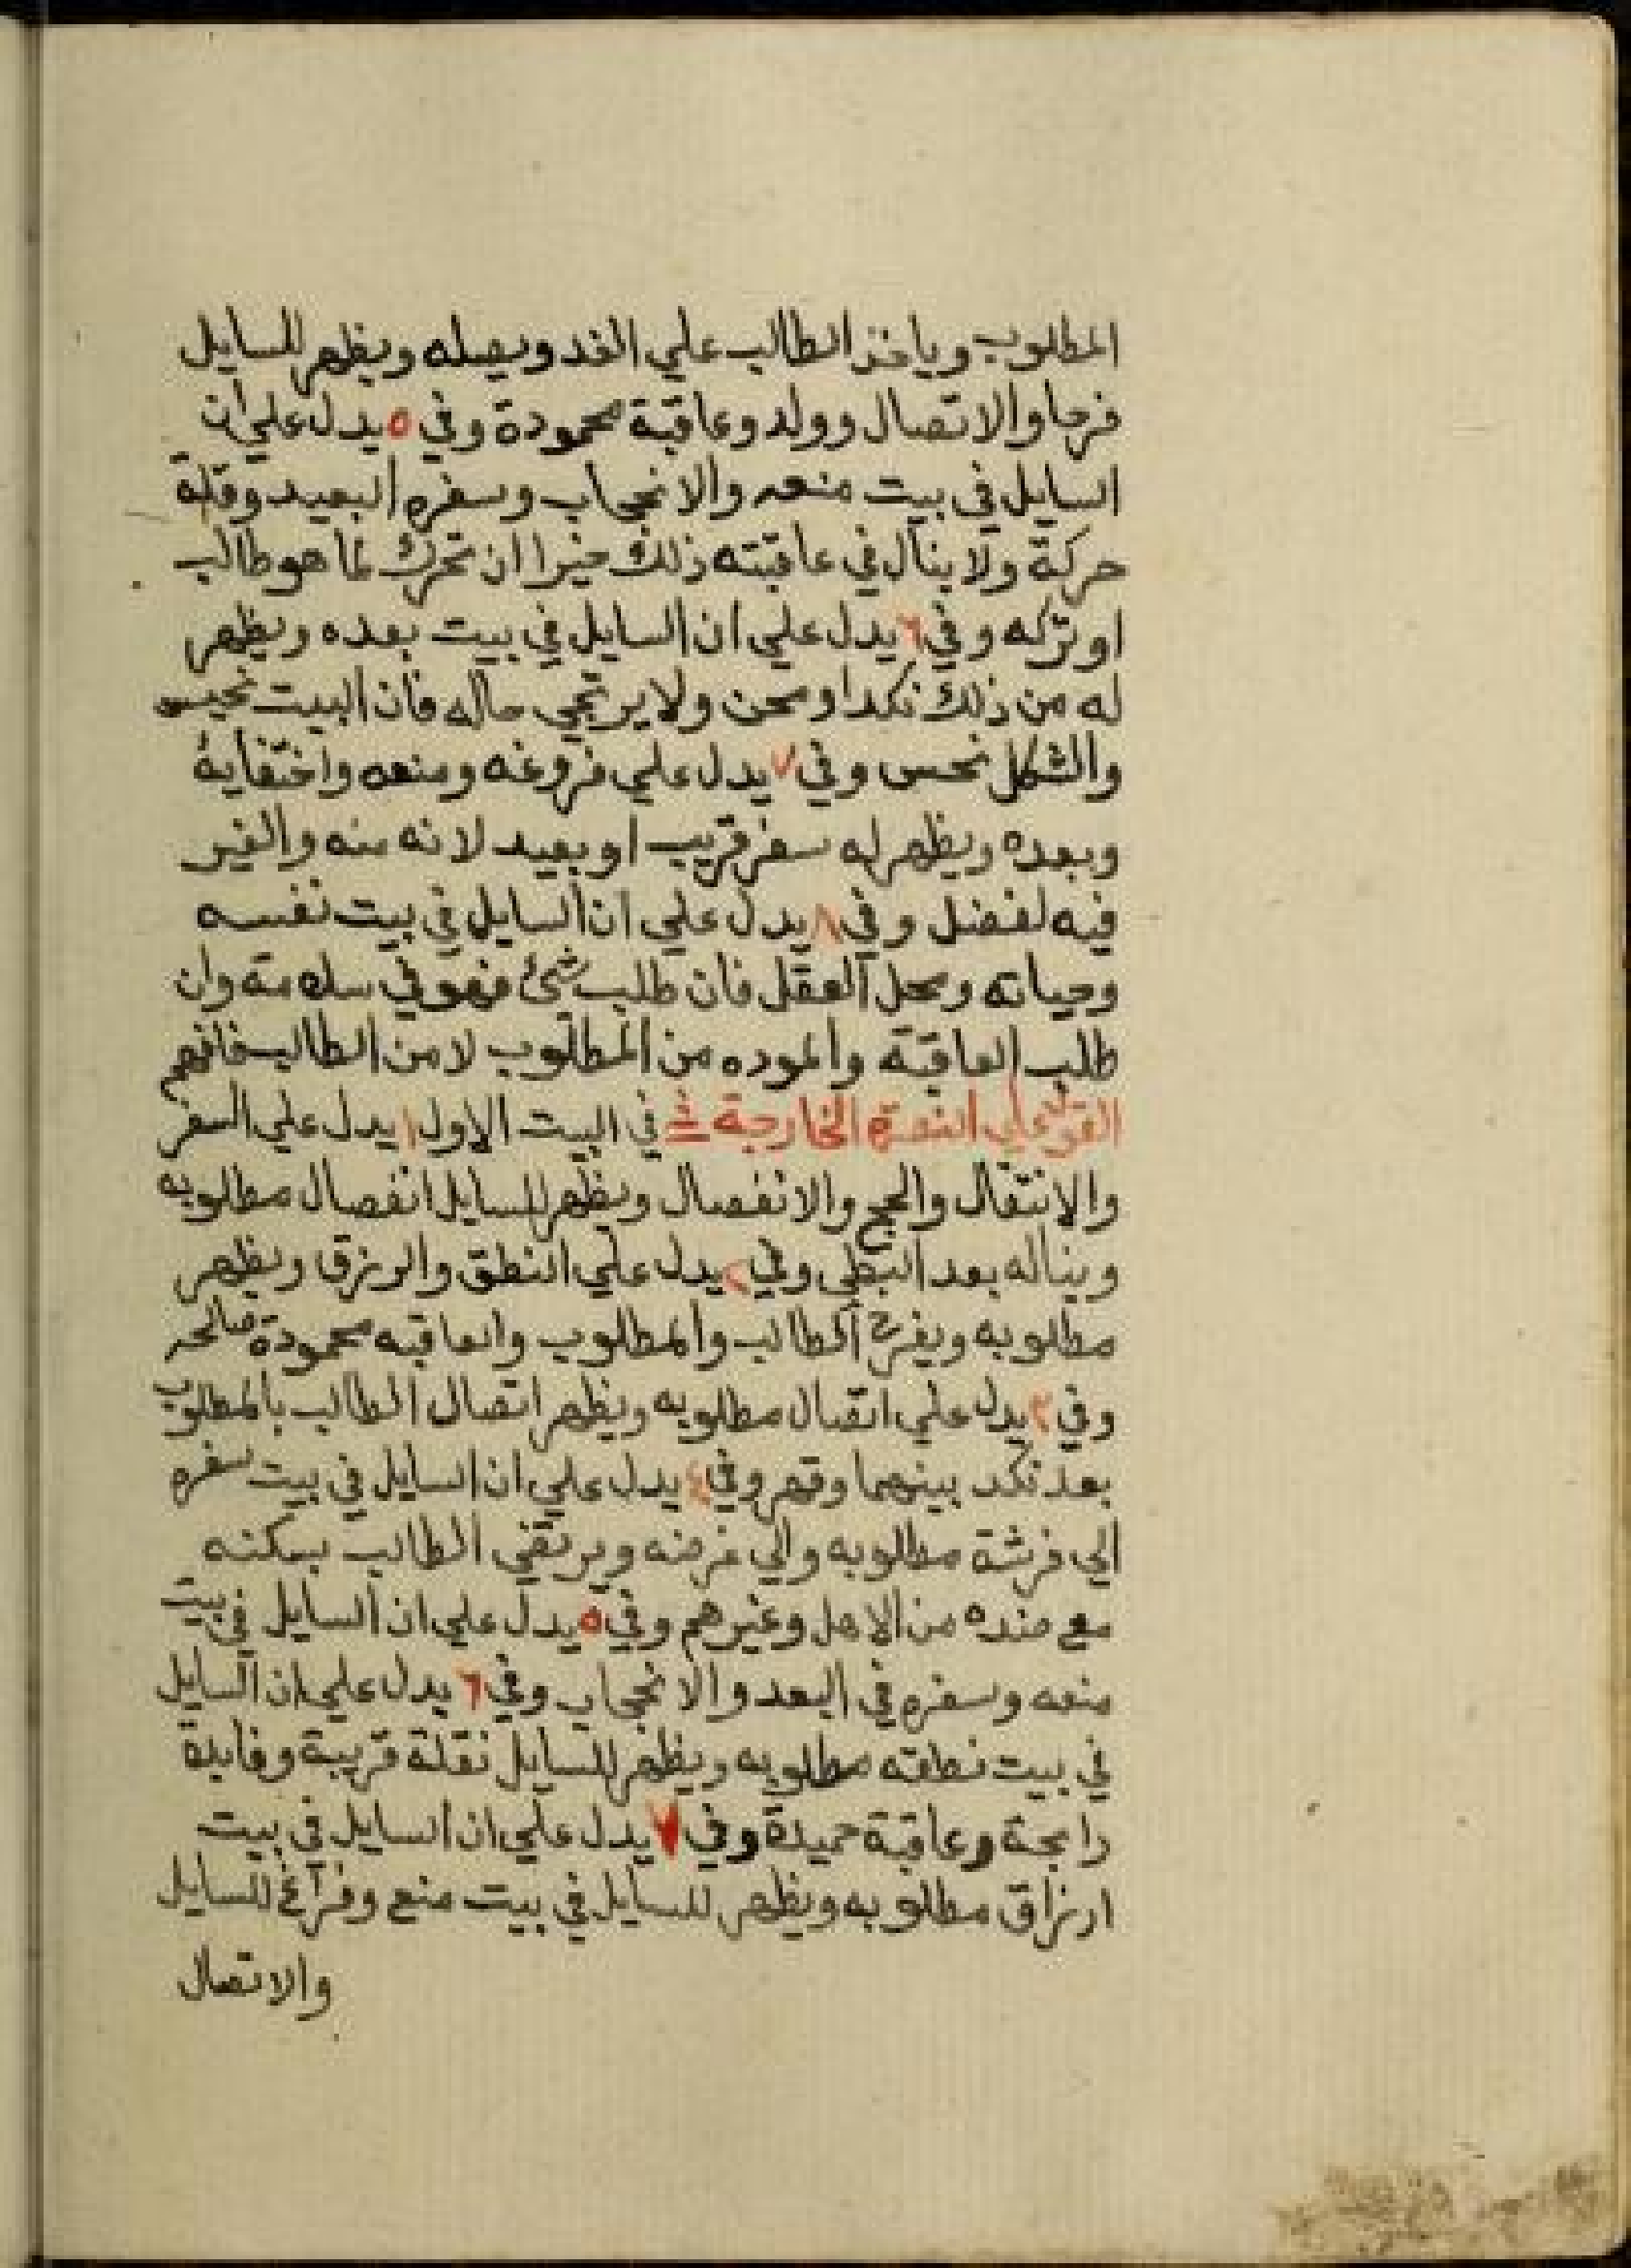 المطلوب وياخذ الطالب علي الغد ويصله ويظهر للسايل
فرحا والاتصال وولد وعاقبة محمودة وفي ٥ يدل علي ان
السايل في بيت منعه والانحجاب وسفره البعيد وقلة
حركة ولا ينال في عاقبته ذلك خيرا ان تحرك لما هو طالب
او تركه وفي ٦ يدل علي ان السايل في بيت بعده ويظهر
له من ذلك نكدا ومحن ولا يرتجي حاله فان البيت نحيس
والشكل نحس وفي ٧ يدل علي فروغه ومنعه واختفاية
وبعده ويظهر له سفر قريب او بعيد لانه منه والغير
فيه لفضل وفي ٨ يدل علي ان السايل في بيت نفسه
وحياته ومحل العقل فان طلب شئ فهو في سلامة وان
طلب العاقبة والموده من المطلوب لا من الطالب فافهم
القول علي النصرة الخارجة في البيت الاول ١ يدل علي السفر
والانتقال والحج والانفصال ويظهر للسايل انفصال مطلوبه
ويناله بعد البطي وفي ٢ يدل علي النطق والرزق ويظهر
مطلوبه ويفرح الطالب والمطلوب والعاقبه محمودة صالحه
وفي ٣ يدل علي اتصال مطلوبه ويظهر اتصال الطالب بالمطلوب
بعد نكد بينهما وقهر وفي ٤ يدل علي ان السايل في بيت سفره
الي فرشة مطلوبه والي غرضه ويرتقي الطالب بسكنه
مع ضده من الاهل وغيرهم وفي ٥ يدل علي ان السايل في بيت
منعه وسفره في البعد والانحجاب وفي ٦ يدل علي ان السايل
في بيت نطقه مطلوبه ويظهر للسايل نقلة قريبة وفايدة
رابحة وعاقبة حميدة وفي ٧ يدل علي ان السايل في بيت
ارزاق مطلوبه ويظهر للسايل في بيت منع وفراغ للسايل
والاتصال